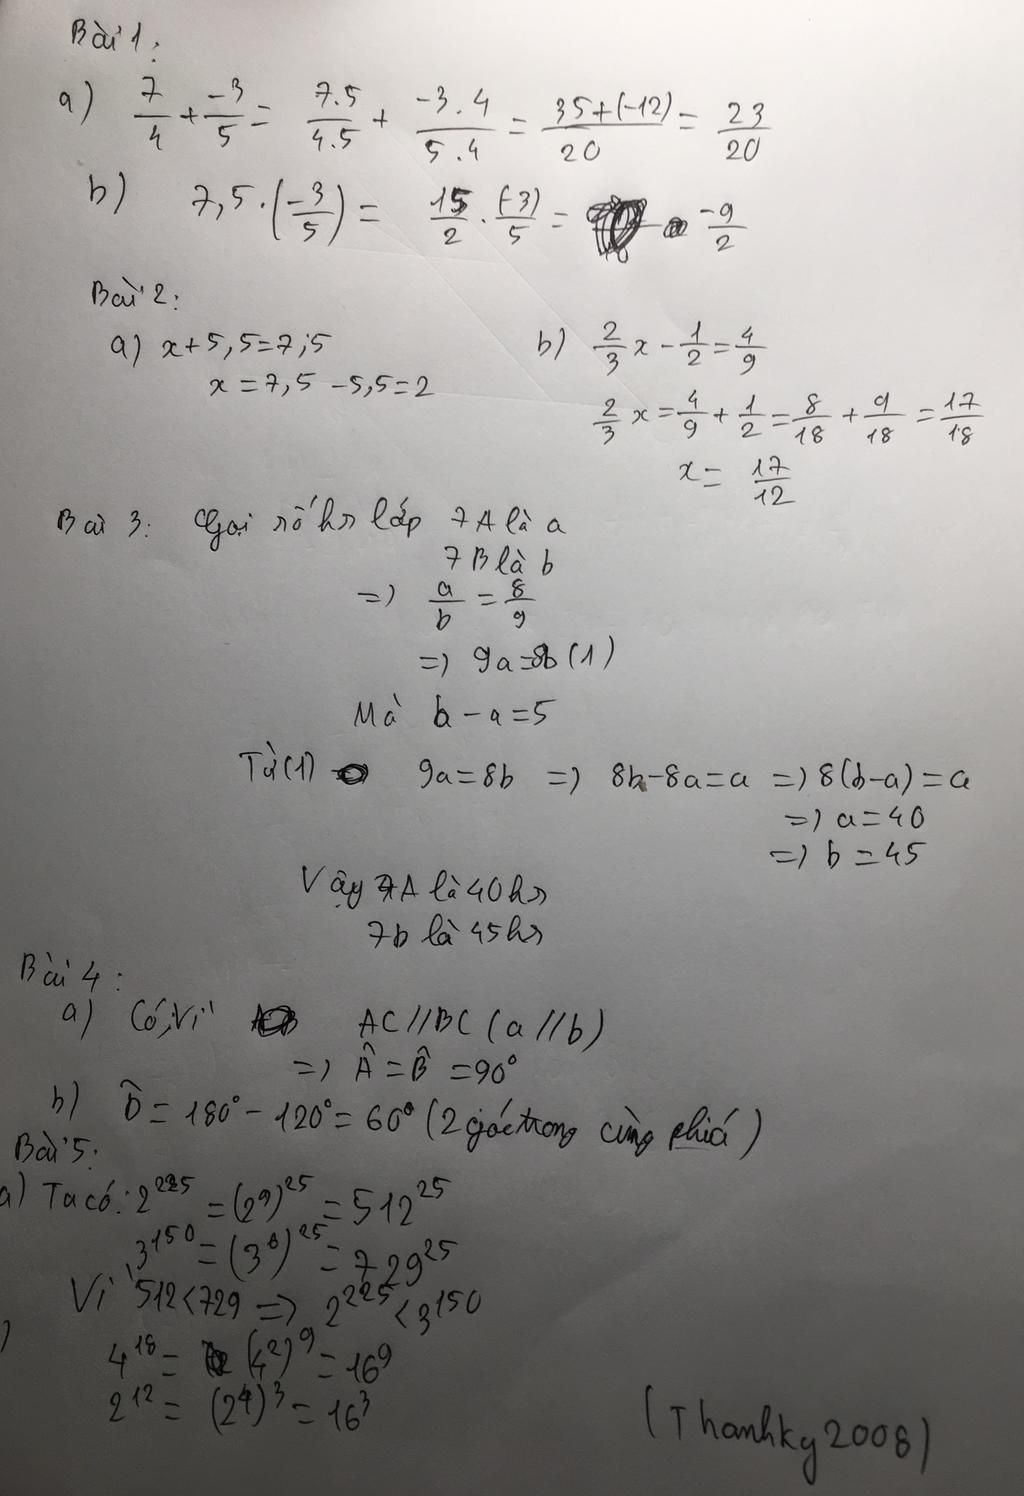 Bài 1:
a) 7/4 + -3/5 = 7.5/4.5 + -3.4/5.4 = 35+(-12)/20 = 23/20
b) 7,5.(-3/5) = 15/2 . (-3)/5 = -9/2
Bài 2:
a) x+5,5=7,5
x=7,5-5,5=2
b) 2/3 x - 1/2 = 4/9
2/3 x = 4/9 + 1/2 = 8/18 + 9/18 = 17/18
x = 17/12
Bài 3: Gọi số hs lớp 7A là a
7B là b
=> a/b = 8/9
=> 9a=8b (1)
Mà b-a=5
Từ (1) 9a=8b => 8b-8a=a => 8(b-a)=a
=> a=40
=> b=45
Vậy 7A là 40hs
7b là 45hs
Bài 4:
a) Có, vì AC//BC (a//b)
=> Â = B̂ = 90°
b) D̂ = 180° - 120° = 60° (2 góc trong cùng phiá)
Bài 5:
a) Ta có: 2^225 = (2^9)^25 = 512^25
3^150 = (3^6)^25 = 729^25
Vì 512<729 => 2^225 < 3^150
) 4^18 = (4^2)^9 = 16^9
2^12 = (2^4)^3 = 16^3
(Thanhky2008)